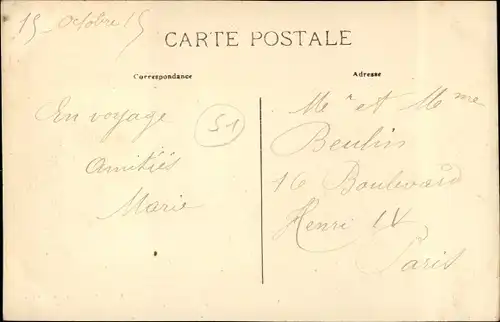 15 Octobre 15
CARTE POSTALE
Correspondance
Adresse
En voyage
Amitiés
Marie
51
Mr et Mme
16 Boulevard
Henri IV
Paris